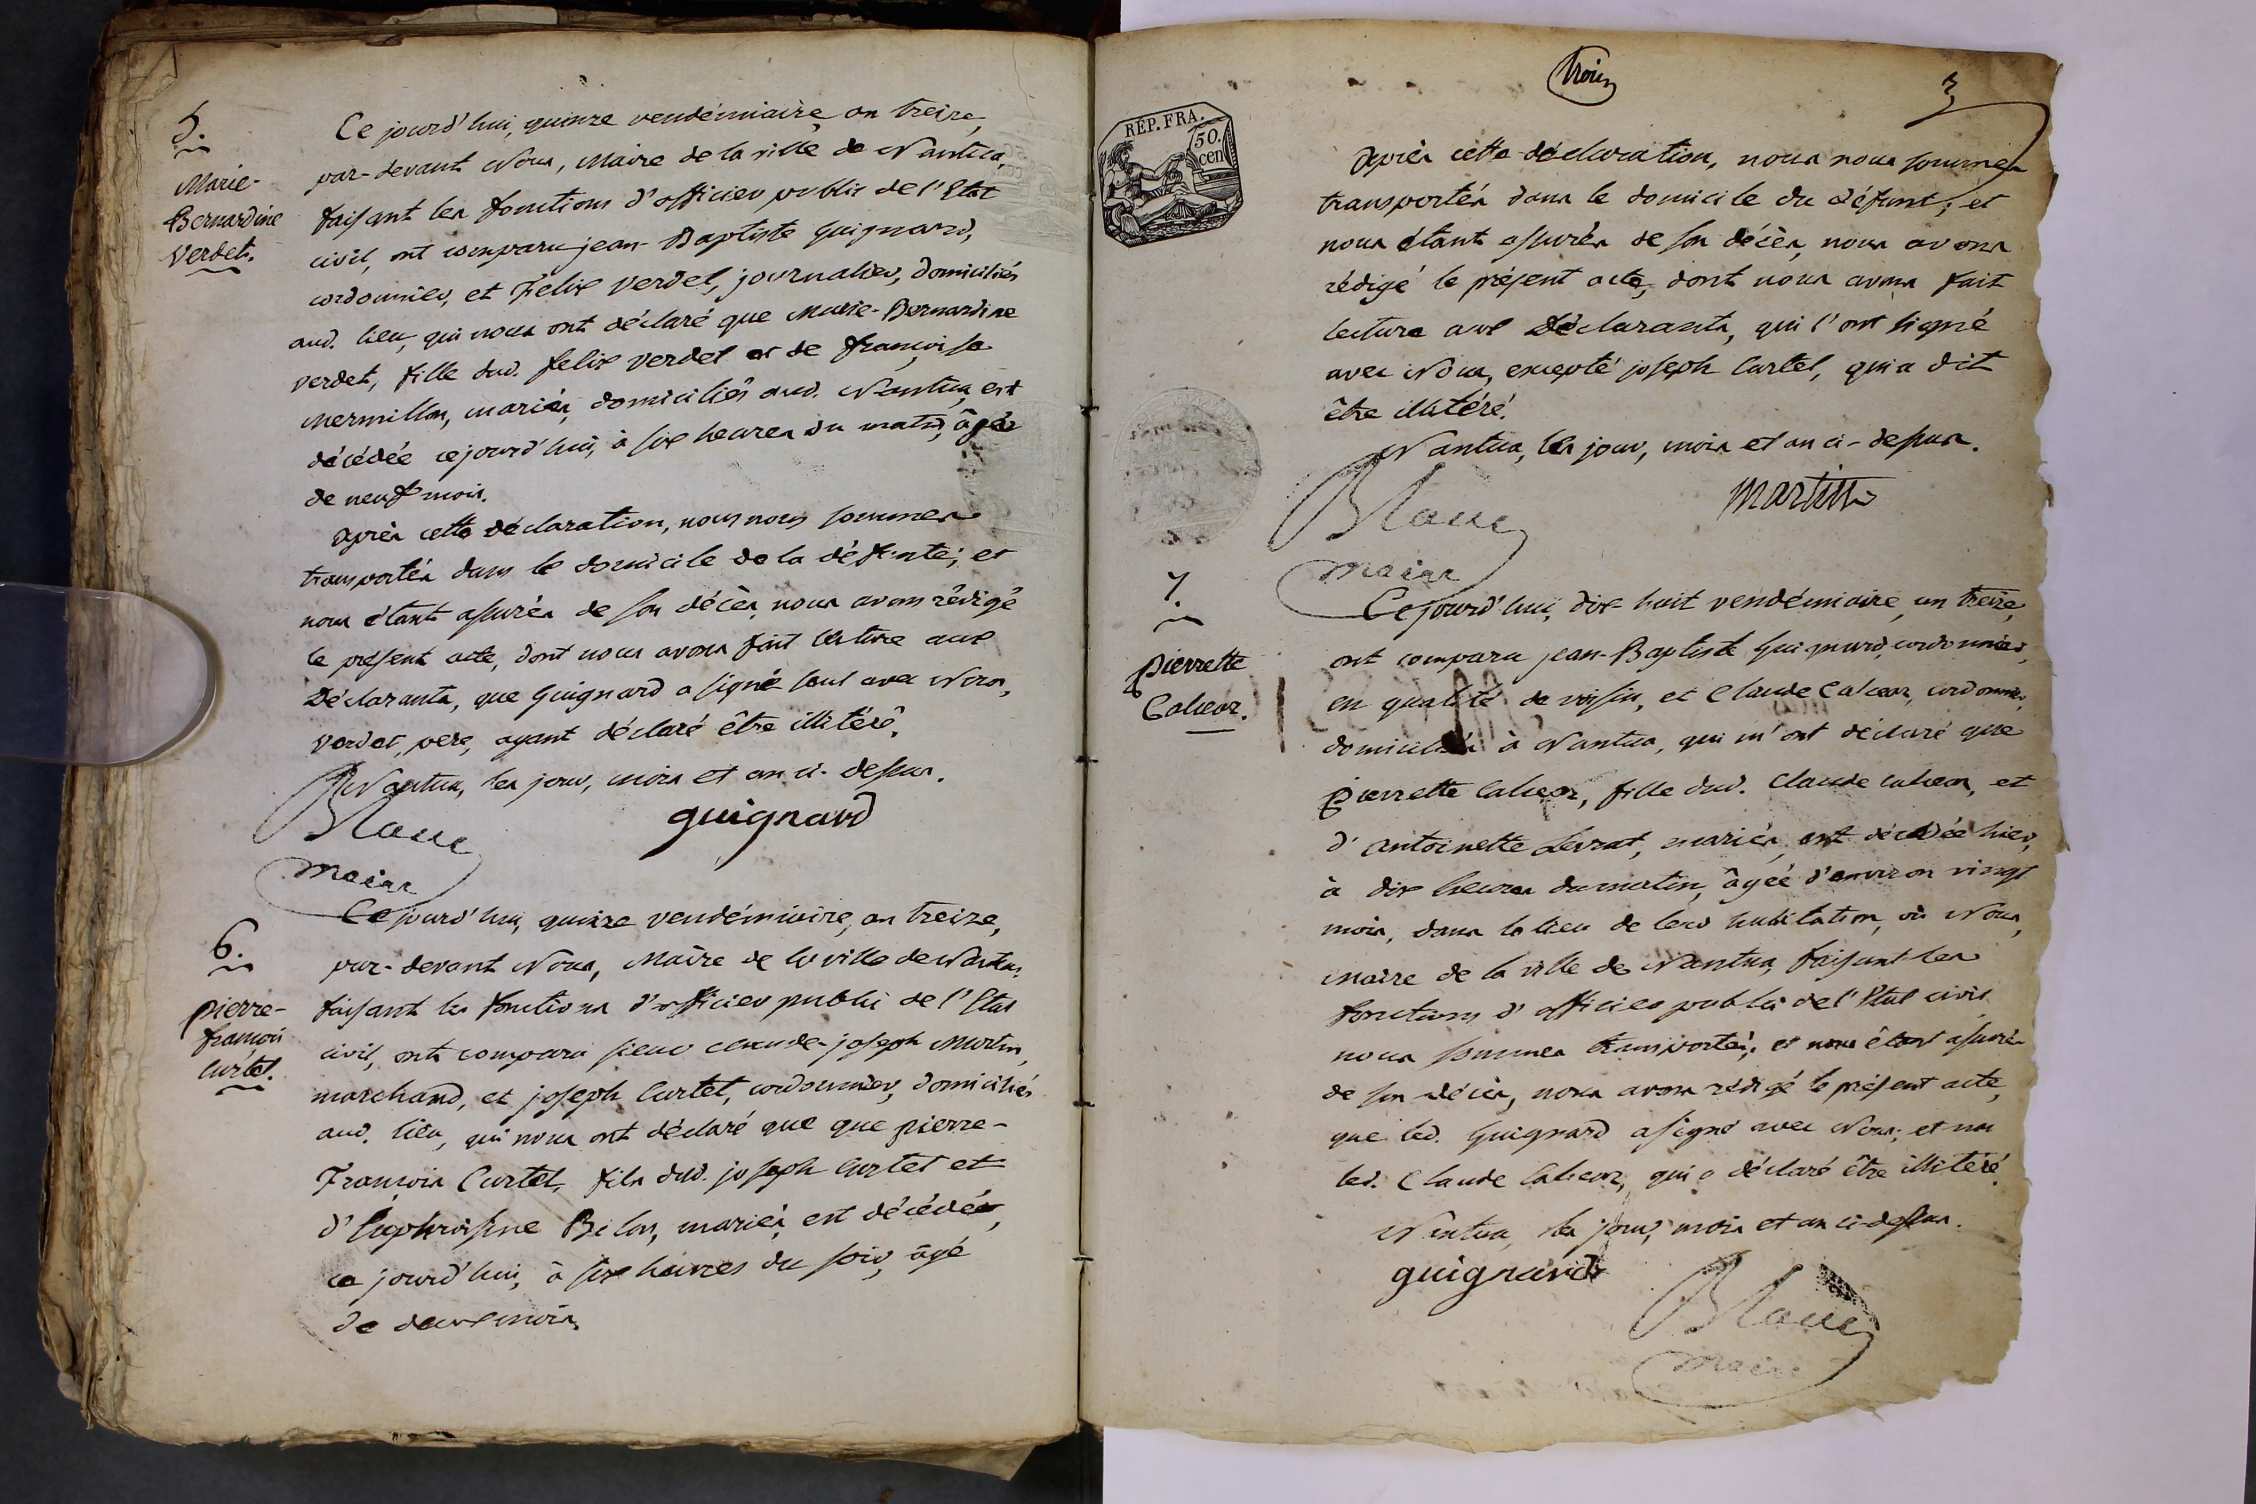 5.
Marie-
Bernardine
Verdet.
Ce jourd'hui, quinze vendémiaire an treize,
par-devant Nous, Maire de la ville de Nantua,
faisant les fonctions d'officier public de l'Etat
civil, ont comparu jean-Baptiste Guignard,
cordonnier, et Felix Verdet, journalier, domiciliés
aud. lieu, qui nous ont déclaré que Marie-Bernardine
Verdet, fille dud. felix Verdet et de françoise
Mermillon, mariés, domiciliés aud. Nantua, est
décédée cejourd'hui, à six heures du matin, âgée
de neuf mois.
Après cette déclaration, nous nous sommes
transportés dans le domicile de la défunte; et
nous étant assurés de son décès, nous avons rédigé
le présent acte, dont nous avons fait lecture aux
Déclarants, que Guignard a signé seul avec Nous,
Verdet, pere, ayant déclaré être illitéré.
Nantua, les jour, mois et an ci-dessus.
Blanc guignard
maire
6.
pierre-
françois
Curtet.
Ce jourd'hui, quinze vendémiaire, an treize,
par-devant Nous, Maire de la ville de Nantua,
faisant les fonctions d'officier public de l'Etat
civil, ont comparu sieur claude-joseph Martin,
marchand, et joseph Curtet, cordonnier, domiciliés
aud. lieu, qui nous ont déclaré que que pierre-
François Curtet, fils dud. joseph Curtet et
d'Euphroisine Bilon, mariés, est décédée,
ce jourd'hui, à six heures du soir, âgé
de deux mois.
trois
3
REP. FRA.
50.
cen
Après cette déclaration, nous nous sommes
transportés dans le domicile du défunt; et
nous étant assurés de son décès, nous avons
rédigé le présent acte, dont nous avons fait
lecture aux Déclarants, qui l'ont signé
avec Nous, excepté joseph Curtet, qui a dit
être illitéré.
Nantua, les jour, mois et an ci-dessus.
Blanc martin
maire
7.
pierrette
Calvoz.
Ce jourd'hui, dix huit vendémiaire, an treize,
ont comparu jean-Baptiste Guignard, cordonnier,
en qualité de voisin, et Claude cordonnier,
domiciliés à Nantua, qui m'ont déclaré que
Pierrette fille dud. Claude et
d'Antoinette Levrat, mariés, est décédée hier,
à dix heures du matin, âgée d'environ vingt
mois, dans le lieu de leur habitation, où Nous,
Maire de la ville de Nantua, faisant les
fonctions d'officier public de l'Etat civil
nous sommes transporté; et nous étant assurés
de son décès, nous avons rédigé le présent acte,
que led. Guignard a signé avec Nous; et non
led. Claude qui a déclaré être illitéré.
Nantua, les jour, mois et an ci-dessus.
guignard
Blanc
maire